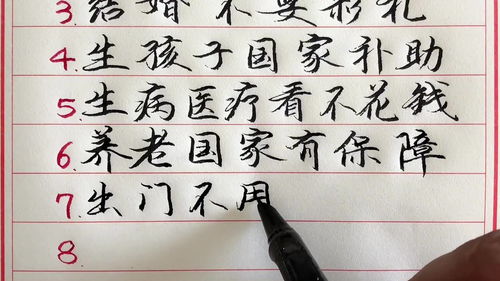 3.结婚不要彩礼
4.生孩子国家补助
5.生病医疗看不花钱
6.养老国家有保障
7.出门不用
8